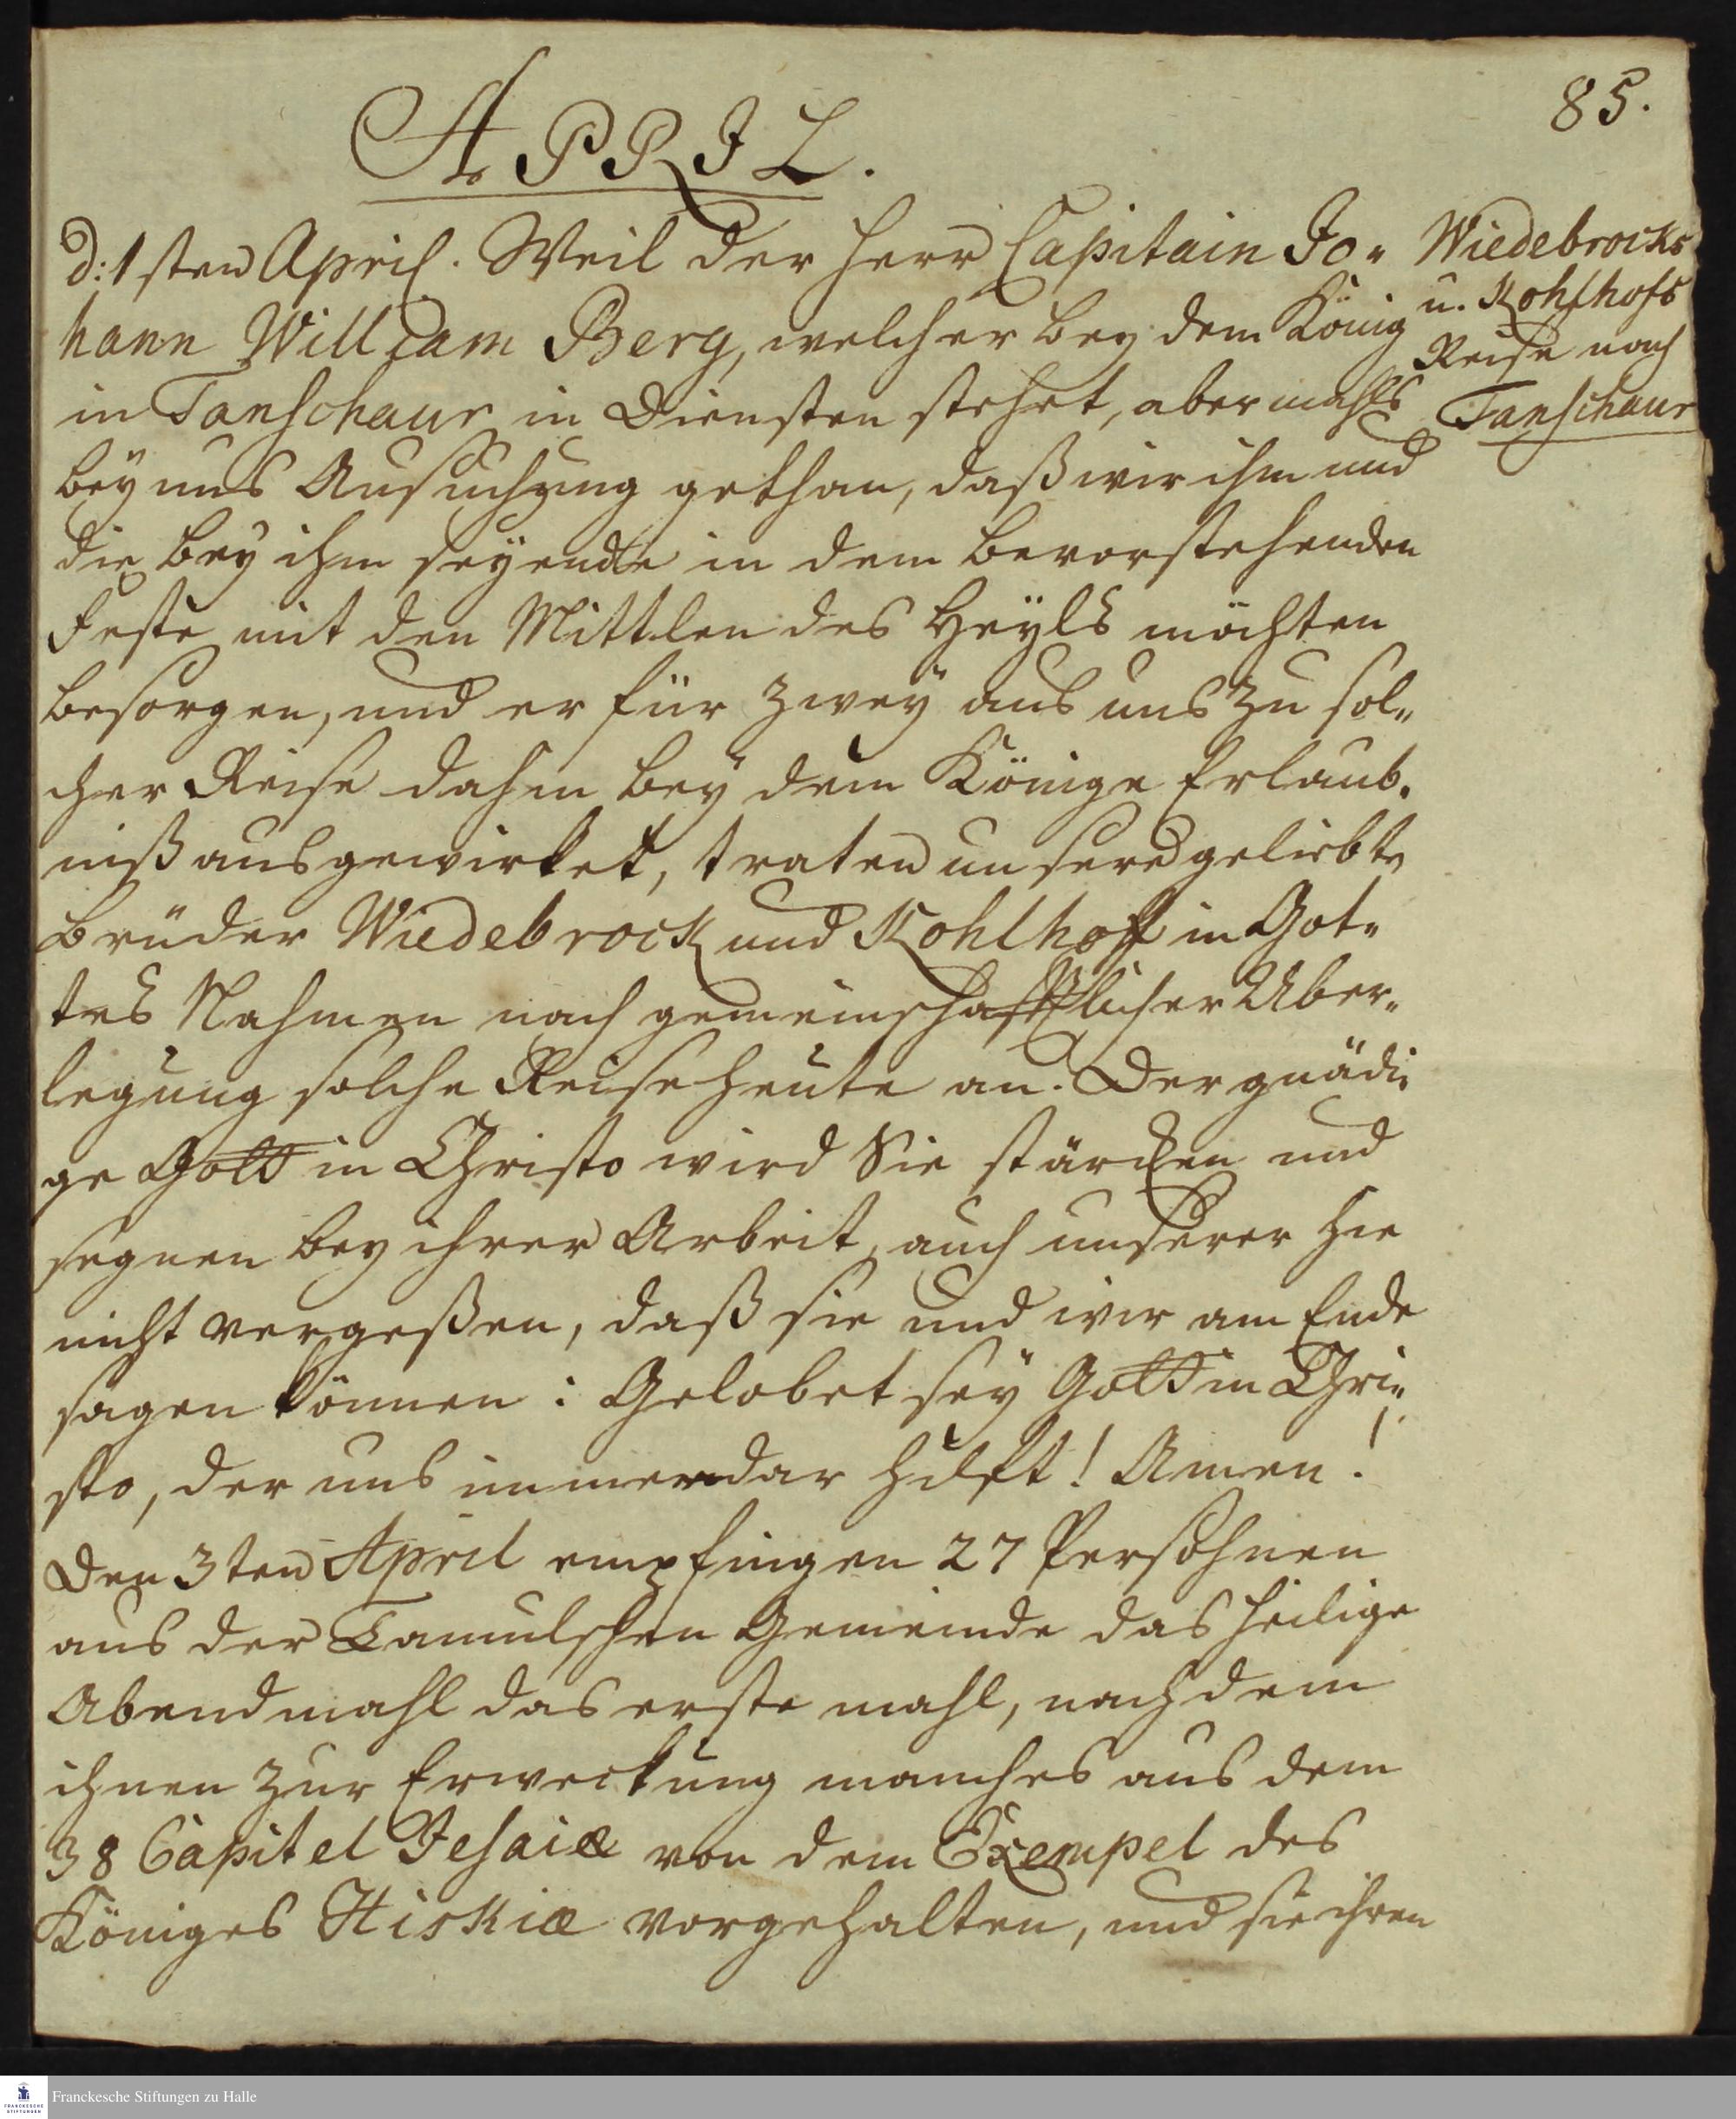 85.
APRIL.
d: 1sten April. Weil der Herr Capitain Jo„
hann William Berg, welcher bey dem König
in Tanschaur in Diensten stehet, abermahls
bey uns Ansuchung gethan, daß wir ihm und
die bey ihm seyende in dem bevorstehenden
Feste mit den Mittlen des Heyls möchten
besorgen, und er für zwey aus uns zu sol„
cher Reise dahin bey dem Könige Erlaub„
niß ausgewirket, traten unsere geliebte
Brüder Wiedebrock und Kohlhoff in Got„
tes Nahmen nach gemeinschafftlicher Uber„
legung solche Reise heute an. Der gnädi„
ge Gott in Christo wird Sie stärcken und
segnen bey ihrer Arbeit, auch unserer hie
nicht vergeßen, daß sie und wir am Ende
sagen können: Gelobet seÿ Gott in Chri„
sto, der uns immerdar hilft! Amen!
Den 3ten April empfingen 27 Persohnen
aus der Tamulschen Gemeinde das heilige
Abendmahl das erste mahl, nachdem
ihnen zur Erweckung manches aus dem
38 Capitel Jesaiæ von dem Exempel des
Königes Hiskiæ vorgehalten, und sie ihren
Wiedebrocks
u. Kohlhofs
Reise nach
Tanschaur
FRANCKESCHE
STIFTUNGEN
Franckesche Stiftungen zu Halle